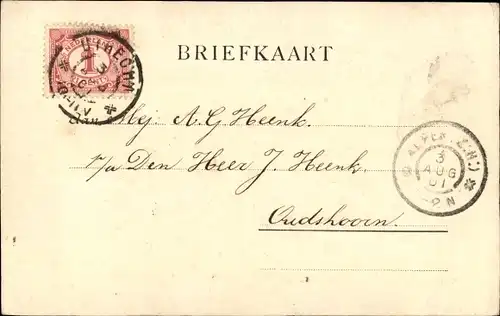 BRIEFKAART
NEDERLAND
1
CENT
UTRECHT
Mej. A.G Heenk.
p/a Den Heer J. Heenk.
Oudshoorn.
ALPEN (Z:H:)
3
AUG
01
-9 N